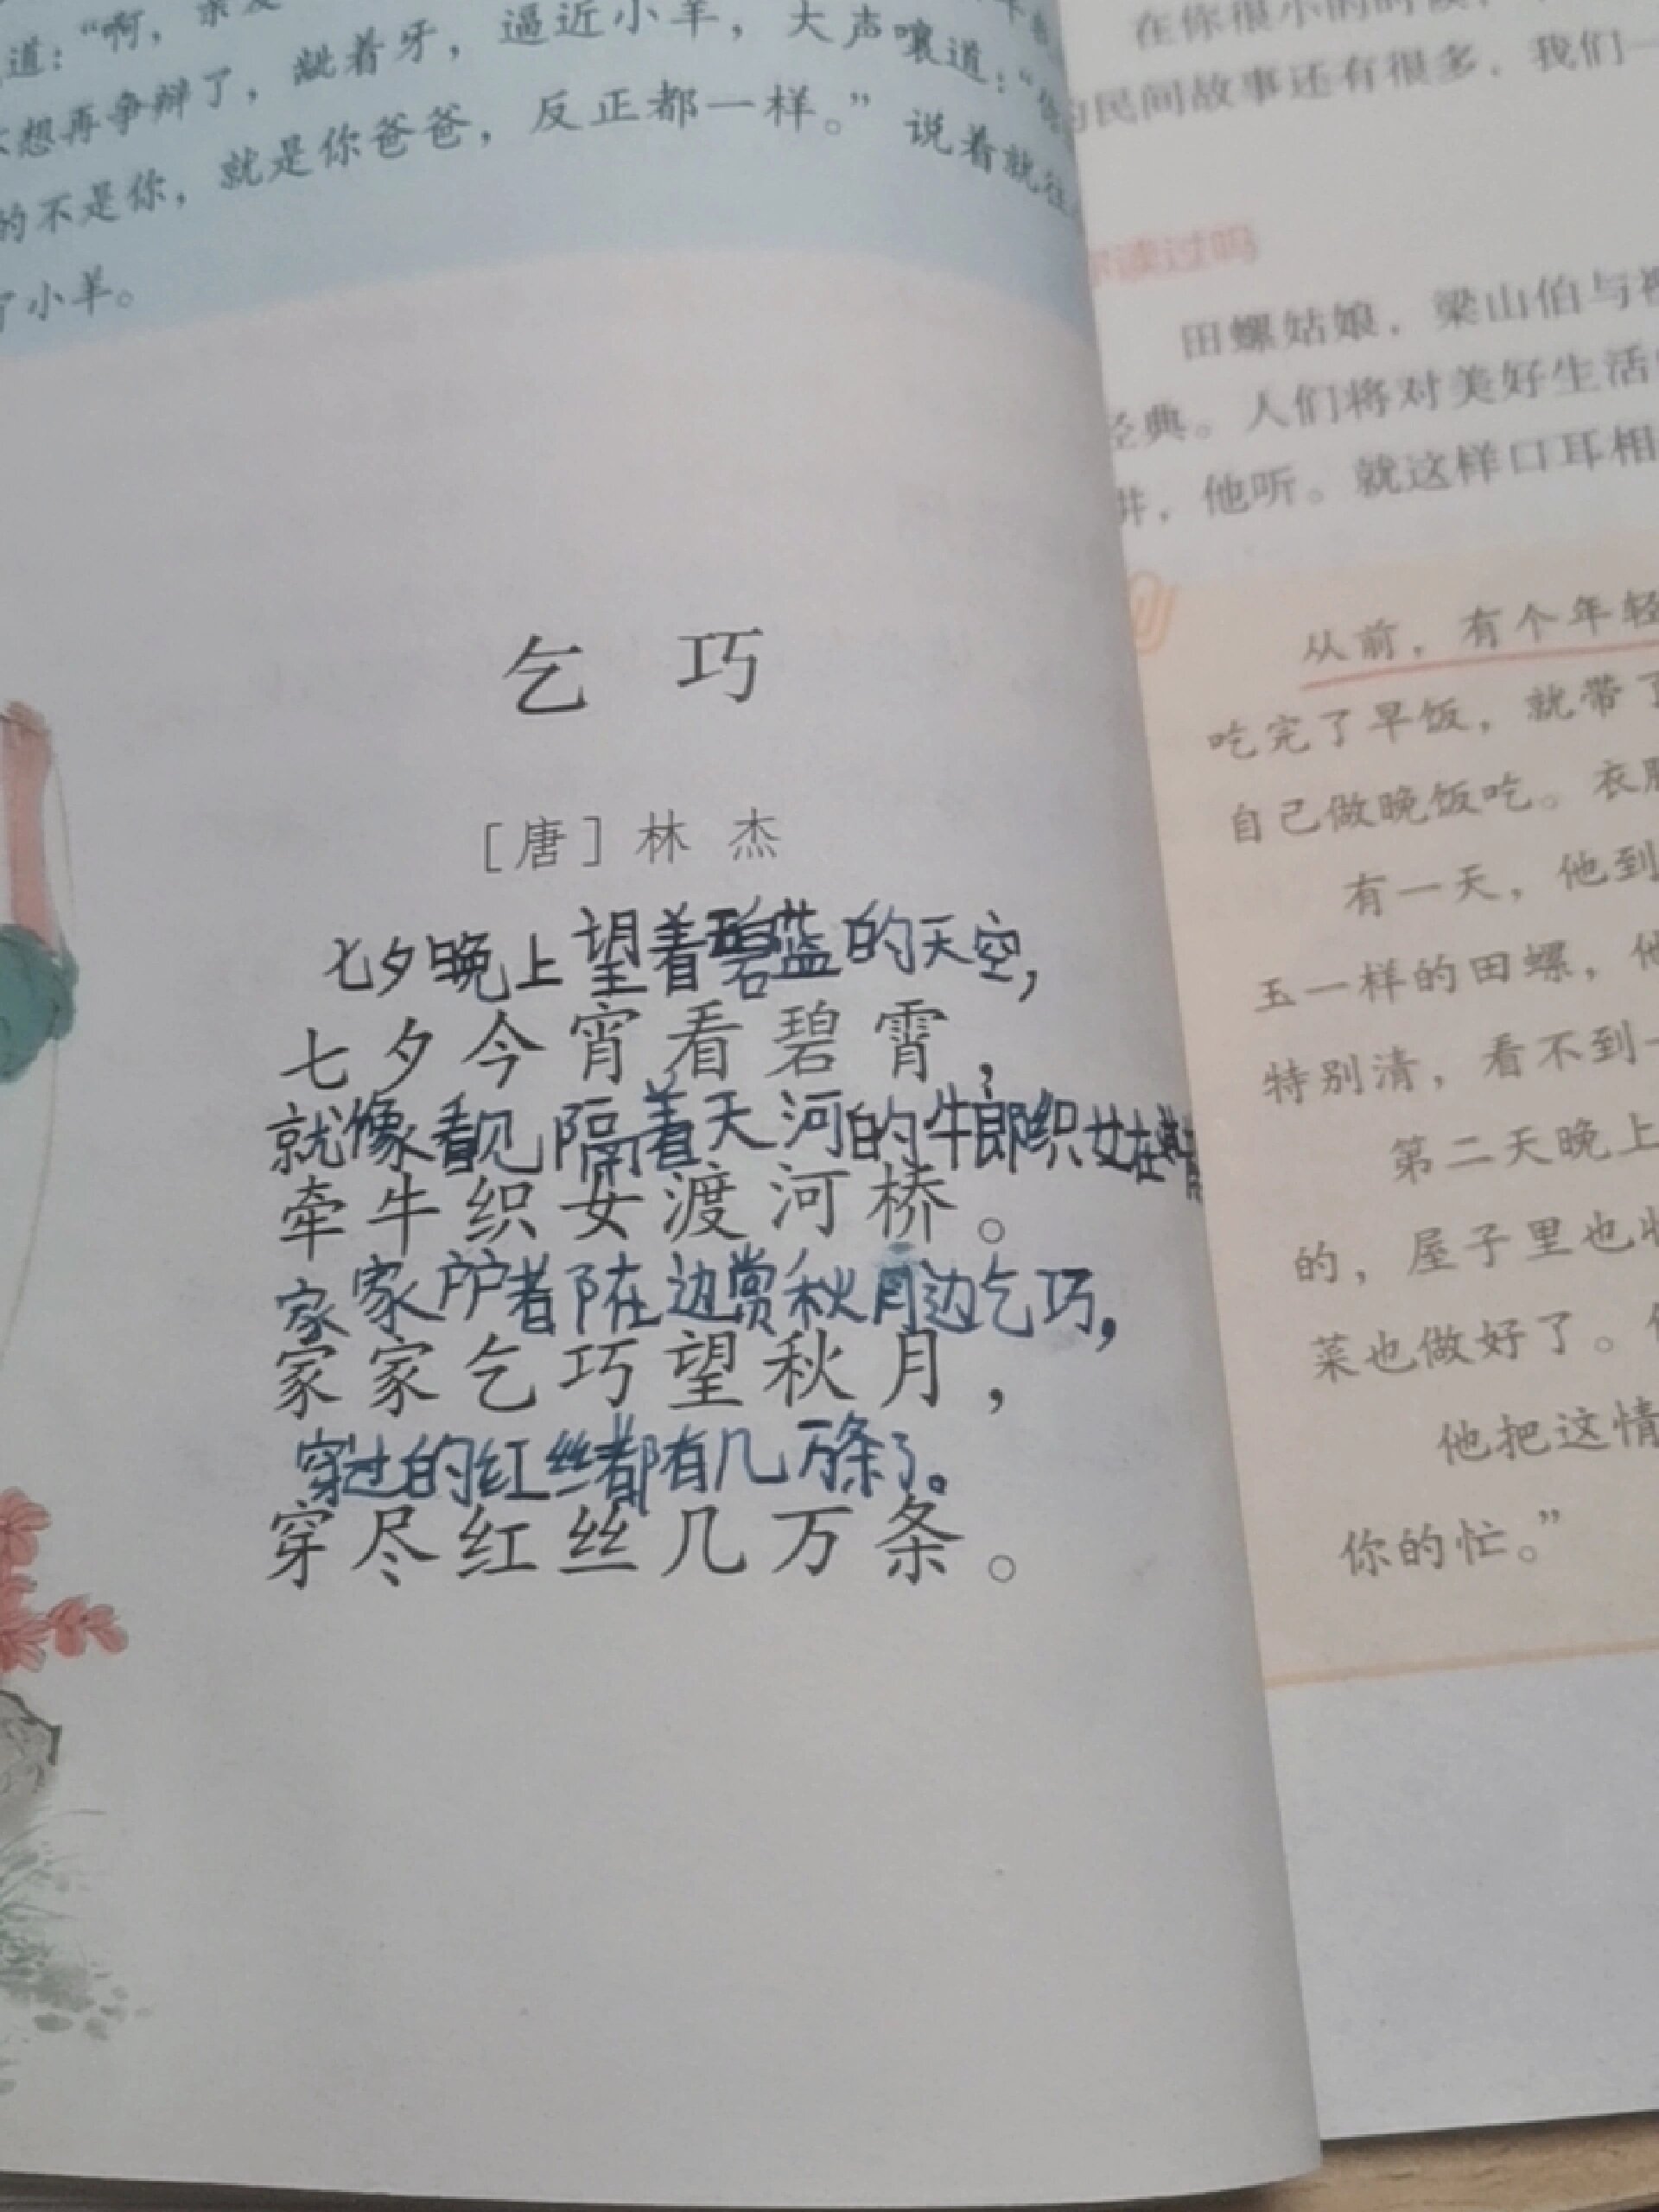 道：“啊，亲爱
不想再争辩了，龇着牙，逼近小羊，大声嚷道：“
的不是你，就是你爸爸，反正都一样。”说着就往
了小羊。
乞 巧
［唐］林 杰
七夕晚上望着碧蓝的天空，
七夕今宵看碧霄，
就像看见隔着天河的牛郎织女在
牵牛织女渡河桥。
家家户户都在边赏秋月边乞巧，
家家乞巧望秋月，
穿过的红丝都有几万条了。
穿尽红丝几万条。
在你很小的时候，
的民间故事还有很多，我们一
你读过吗
田螺姑娘，梁山伯与祝
经典。人们将对美好生活
讲，他听。就这样口耳相
从前，有个年轻
吃完了早饭，就带了
自己做晚饭吃。衣服
有一天，他到
玉一样的田螺，他
特别清，看不到一
第二天晚上
的，屋子里也收
菜也做好了。
他把这情
你的忙。”